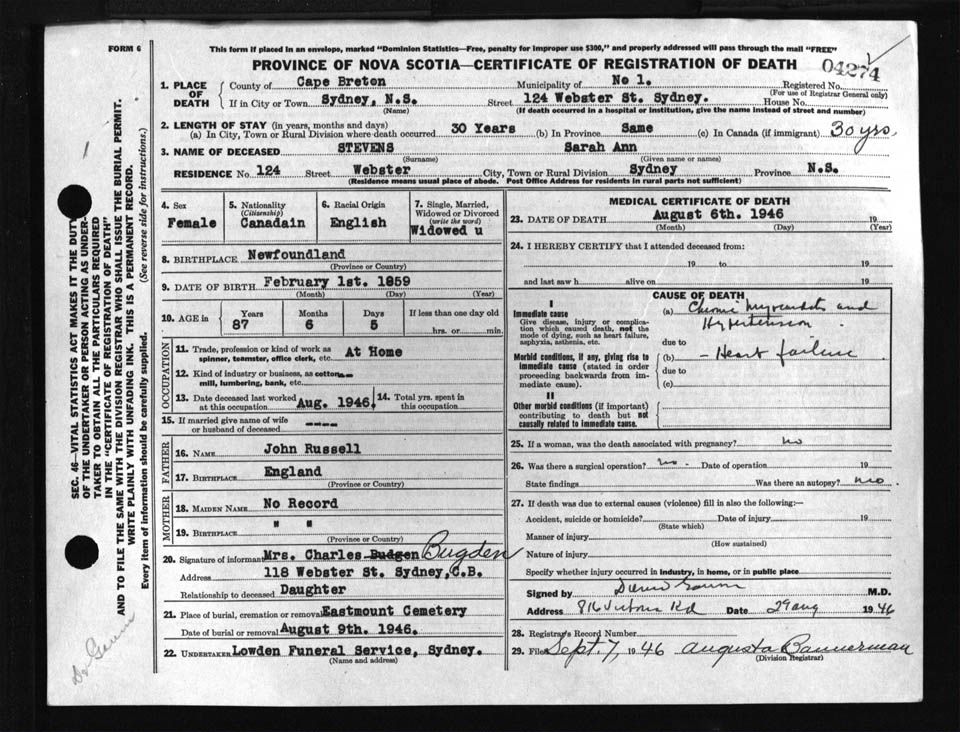 FORM 6
This form if placed in an envelope, marked "Dominion Statistics—Free, penalty for improper use $300," and properly addressed will pass through the mail "FREE"
PROVINCE OF NOVA SCOTIA—CERTIFICATE OF REGISTRATION OF DEATH
04274
1. PLACE OF DEATH
County of Cape Breton Municipality of No 1. Registered No.
(For use of Registrar General only)
If in City or Town Sydney, N.S. Street 124 Webster St. Sydney. House No.
(Name) (If death occurred in a hospital or institution, give the name instead of street and number)
2. LENGTH OF STAY (in years, months and days)
(a) In City, Town or Rural Division where death occurred 30 Years (b) In Province Same (c) In Canada (if immigrant) 30 yrs
3. NAME OF DECEASED STEVENS Sarah Ann
(Surname) (Given name or names)
RESIDENCE No. 124 Street Webster City, Town or Rural Division Sydney Province N.S.
(Residence means usual place of abode. Post Office Address for residents in rural parts not sufficient)
4. Sex
Female
5. Nationality
(Citizenship)
Canadain
6. Racial Origin
English
7. Single, Married, Widowed or Divorced
(write the word)
Widowed u
8. BIRTHPLACE Newfoundland
(Province or Country)
9. DATE OF BIRTH February 1st. 1859
(Month) (Day) (Year)
10. AGE in Years Months Days If less than one day old
87 6 5 hrs. or min.
OCCUPATION
11. Trade, profession or kind of work as At Home
spinner, teamster, office clerk, etc.
12. Kind of industry or business, as cotton
mill, lumbering, bank, etc.
13. Date deceased last worked at this occupation Aug. 1946
14. Total yrs. spent in this occupation
15. If married give name of wife or husband of deceased ----
FATHER
16. NAME John Russell
17. BIRTHPLACE England
(Province or Country)
MOTHER
18. MAIDEN NAME No Record
19. BIRTHPLACE " "
(Province or Country)
20. Signature of informant Mrs. Charles Budgen Bugden
Address 118 Webster St. Sydney, C.B.
Relationship to deceased Daughter
21. Place of burial, cremation or removal Eastmount Cemetery
Date of burial or removal August 9th. 1946.
22. UNDERTAKER Lowden Funeral Service, Sydney.
(Name and address)
MEDICAL CERTIFICATE OF DEATH
23. DATE OF DEATH August 6th. 1946 19
(Month) (Day) (Year)
24. I HEREBY CERTIFY that I attended deceased from:
19 to 19
and last saw h alive on 19
I
Immediate cause
Give disease, injury or complication which caused death, not the mode of dying, such as heart failure, asphyxia, asthenia, etc.
Morbid conditions, if any, giving rise to immediate cause (stated in order proceeding backwards from immediate cause).
II
Other morbid conditions (if important) contributing to death but not causally related to immediate cause.
CAUSE OF DEATH
(a) Chronic Myocarditis and
Hypertension
due to
(b) - Heart failure
due to
(c)
25. If a woman, was the death associated with pregnancy? no
26. Was there a surgical operation? no. Date of operation 19
State findings Was there an autopsy? no
27. If death was due to external causes (violence) fill in also the following:—
Accident, suicide or homicide? Date of injury 19
(State which)
Manner of injury
(How sustained)
Nature of injury
Specify whether injury occurred in industry, in home, or in public place
Signed by M.D.
Address 816 Victoria Rd Date 29 aug 1946
28. Registrar's Record Number
29. Filed Sept. 7, 1946 Augusta Bannerman
(Division Registrar)
SEC. 46—VITAL STATISTICS ACT MAKES IT THE DUTY
OF THE UNDERTAKER OR PERSON ACTING AS UNDER-
TAKER TO OBTAIN ALL THE PARTICULARS REQUIRED
IN THE "CERTIFICATE OF REGISTRATION OF DEATH"
AND TO FILE THE SAME WITH THE DIVISION REGISTRAR WHO SHALL ISSUE THE BURIAL PERMIT.
WRITE PLAINLY WITH UNFADING INK. THIS IS A PERMANENT RECORD.
Every item of information should be carefully supplied. (See reverse side for instructions.)